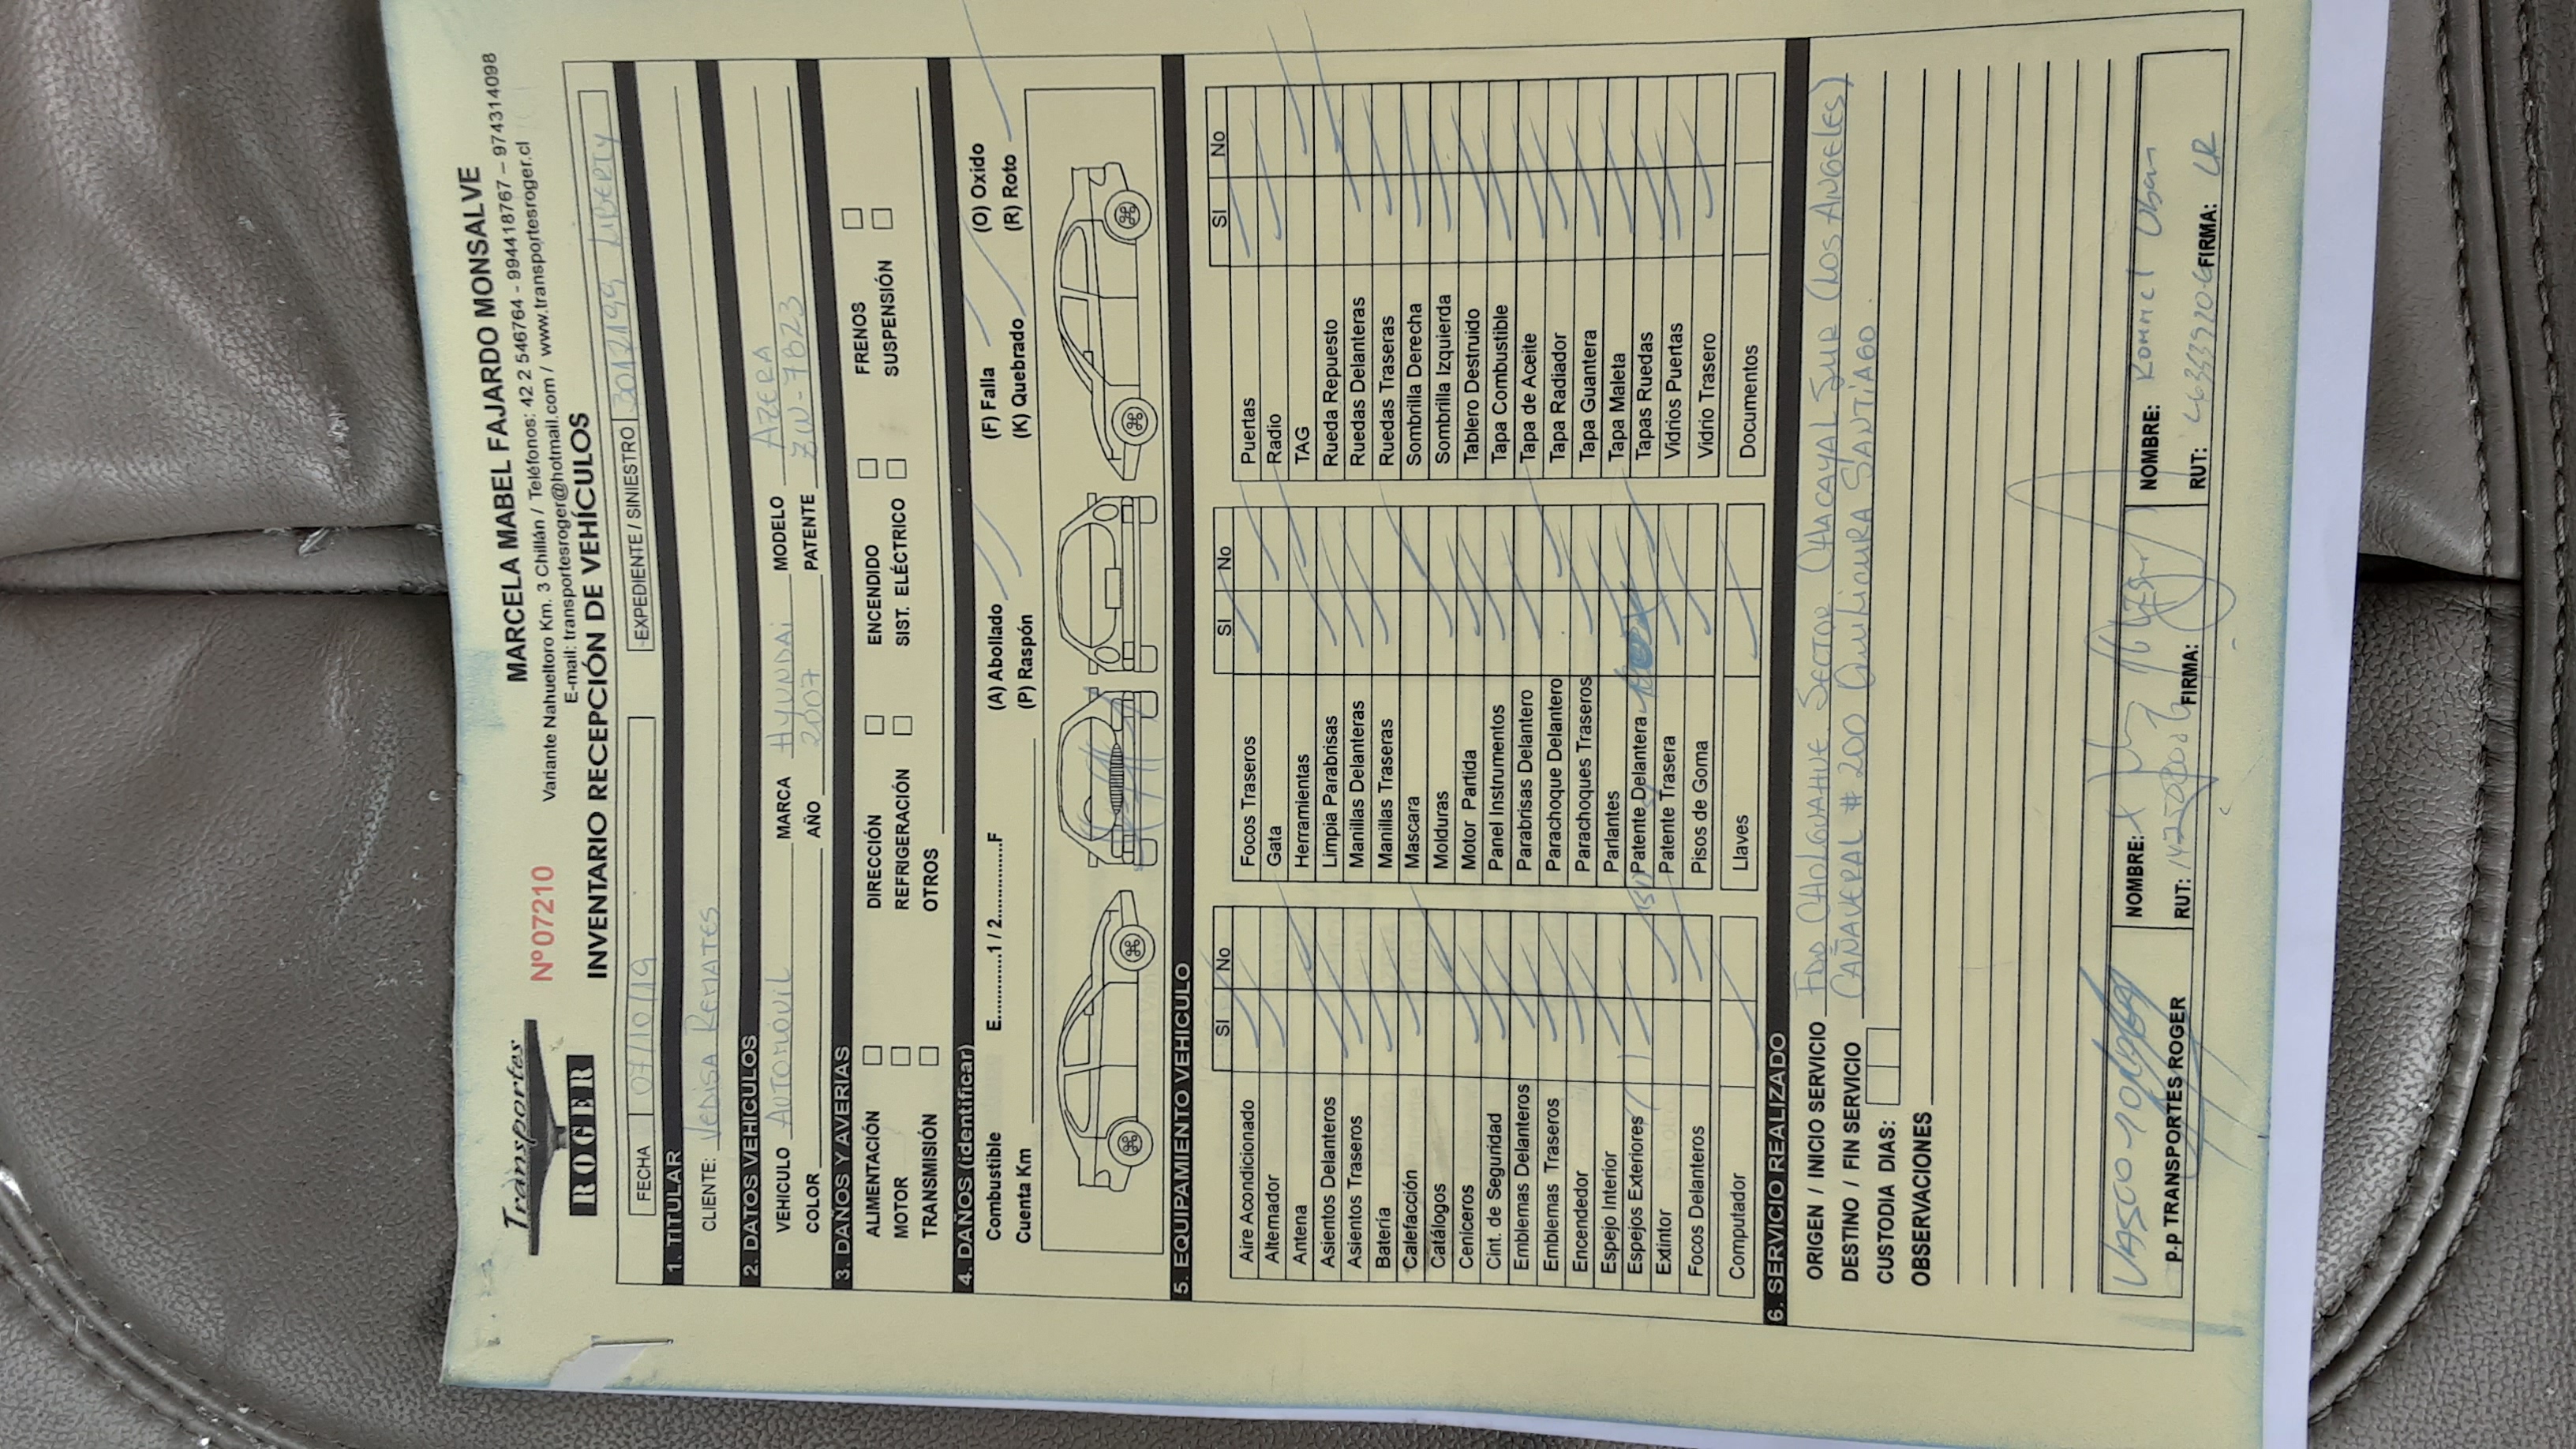 Transportes
ROGER
Nº 07210
MARCELA MABEL FAJARDO MONSALVE
Variante Nahueltoro Km. 3 Chillán / Teléfonos: 42 2 546764 - 994418767 – 974314098
E-mail: transportesroger@hotmail.com / www.transportesroger.cl
INVENTARIO RECEPCIÓN DE VEHÍCULOS
FECHA 07/10/19 EXPEDIENTE / SINIESTRO LIBERTY
1. TITULAR
CLIENTE: VEDISA REMATES
2. DATOS VEHICULOS
VEHICULO AUTOMOVIL MARCA HYUNDAI MODELO AZERA
COLOR AÑO 2007 PATENTE ZW-7823
3. DAÑOS Y AVERIAS
ALIMENTACIÓN DIRECCIÓN ENCENDIDO FRENOS
MOTOR REFRIGERACIÓN SIST. ELÉCTRICO SUSPENSIÓN
TRANSMISIÓN OTROS
4. DAÑOS (identificar)
Combustible E............1 / 2............F (A) Abollado (F) Falla (O) Oxido
Cuenta Km (P) Raspón (K) Quebrado (R) Roto
5. EQUIPAMIENTO VEHICULO
SI No SI No SI No
Aire Acondicionado Focos Traseros Puertas
Alternador Gata Radio
Antena Herramientas TAG
Asientos Delanteros Limpia Parabrisas Rueda Repuesto
Asientos Traseros Manillas Delanteras Ruedas Delanteras
Batería Manillas Traseras Ruedas Traseras
Calefacción Mascara Sombrilla Derecha
Catálogos Molduras Sombrilla Izquierda
Ceniceros Motor Partida Tablero Destruido
Cint. de Seguridad Panel Instrumentos Tapa Combustible
Emblemas Delanteros Parabrisas Delantero Tapa de Aceite
Emblemas Traseros Parachoque Delantero Tapa Radiador
Encendedor Parachoques Traseros Tapa Guantera
Espejo Interior Parlantes Tapa Maleta
Espejos Exteriores Patente Delantera Tapas Ruedas
Extintor Patente Trasera Vidrios Puertas
Focos Delanteros Pisos de Goma Vidrio Trasero
Computador Llaves Documentos
6. SERVICIO REALIZADO
ORIGEN / INICIO SERVICIO FDO CHOLGUAHUE. SECTOR CHACAYAL SUR (LOS ANGELES)
DESTINO / FIN SERVICIO CAÑAVERAL # 200 QUILICURA SANTIAGO
CUSTODIA DIAS:
OBSERVACIONES
VASCO NOMBRE: NOMBRE:
P.P TRANSPORTES ROGER RUT: FIRMA: RUT: FIRMA: